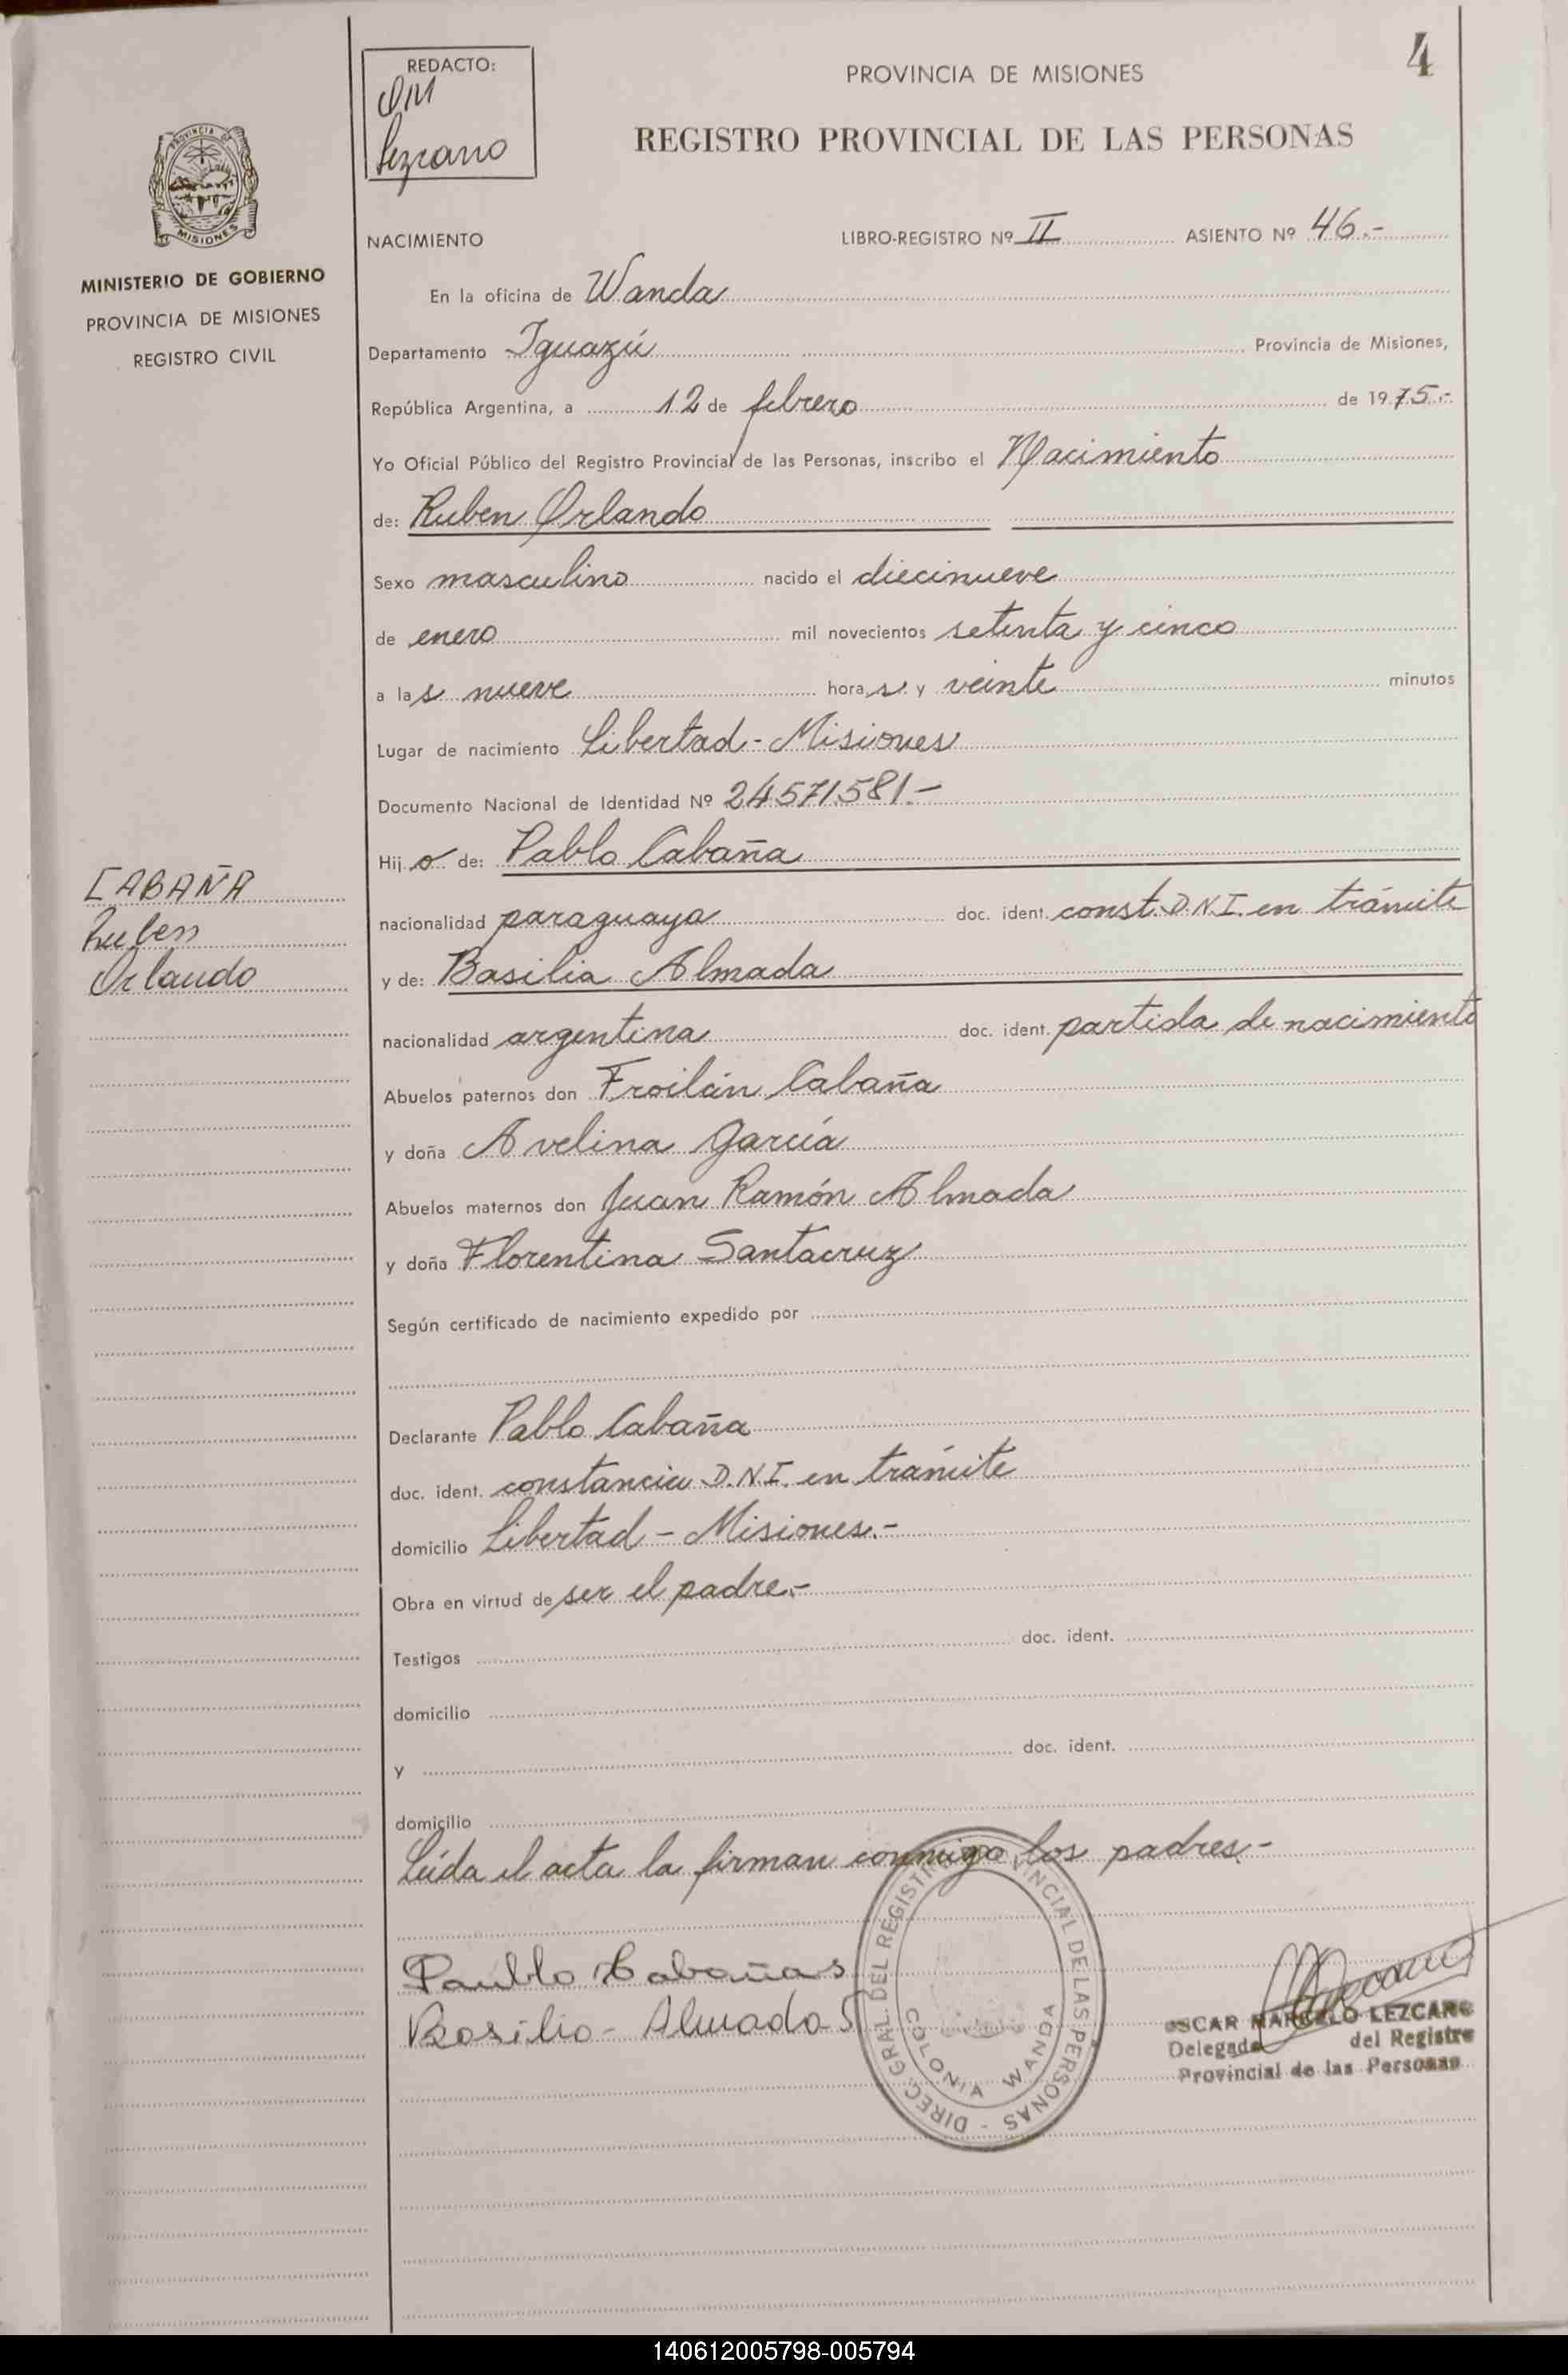 4
REDACTO:
OM
Lezcano
PROVINCIA DE MISIONES
REGISTRO PROVINCIAL DE LAS PERSONAS
PROVINCIA DE
MISIONES
MINISTERIO DE GOBIERNO
PROVINCIA DE MISIONES
REGISTRO CIVIL
CABAÑA
Ruben
Orlando
NACIMIENTO LIBRO-REGISTRO Nº II ASIENTO Nº 46.-
En la oficina de Wanda
Departamento Iguazú Provincia de Misiones,
República Argentina, a 12 de febrero de 1975.-
Yo Oficial Público del Registro Provincial de las Personas, inscribo el Nacimiento
de: Ruben Orlando
Sexo masculino nacido el diecinueve
de enero mil novecientos setenta y cinco
a las nueve horas y veinte minutos
Lugar de nacimiento Libertad - Misiones
Documento Nacional de Identidad Nº 24.571.581.-
Hijo de: Pablo Cabaña
nacionalidad paraguaya doc. ident. const. D.N.I. en trámite
y de: Basilia Almada
nacionalidad argentina doc. ident. partida de nacimiento
Abuelos paternos don Froilán Cabaña
y doña Avelina García
Abuelos maternos don Juan Ramón Almada
y doña Florentina Santacruz
Según certificado de nacimiento expedido por
Declarante Pablo Cabaña
doc. ident. constancia D.N.I. en trámite
domicilio Libertad - Misiones.-
Obra en virtud de ser el padre.-
Testigos doc. ident.
domicilio
y doc. ident.
domicilio
Leída el acta la firman conmigo los padres.-
Paublo Cabañas
Basilio - Almada S
DIREC. GRAL. DEL REGISTRO PROVINCIAL DE LAS PERSONAS -
COLONIA WANDA
OSCAR MARCELO LEZCANO
Delegado del Registro
Provincial de las Personas
140612005798-005794